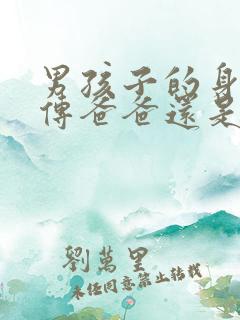 男孩子的身
傳爸爸還是
劉萬里
未經同意禁止轉載